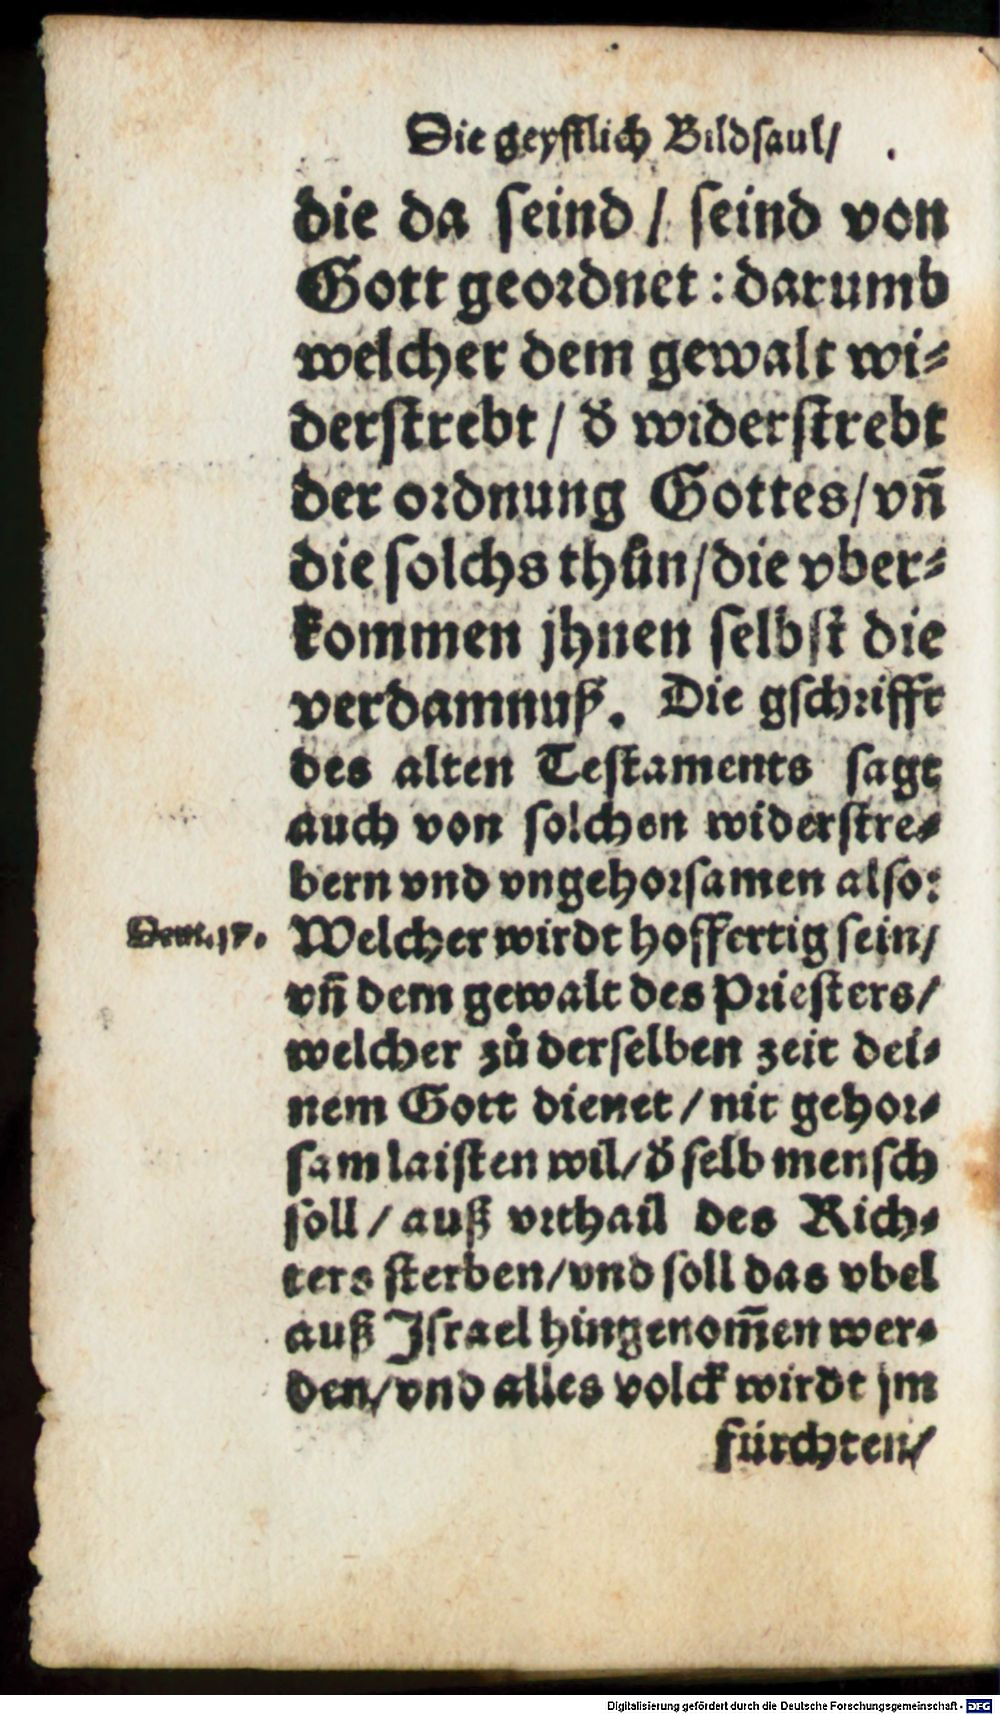 Die geystlich Bildsaul/
die da seind / seind von
Gott geordnet : darumb
welcher dem gewalt wi⸗
derstrebt / d̕ widerstrebt
der ordnung Gottes/ vn̄
die solchs thůn/die vber⸗
kommen jhnen selbst die
verdamnuß. Die gschrifft
des alten Testaments sagt
auch von solchen widerstre⸗
bern vnd vngehorsamen also:
Deut. 17. Welcher wirdt hoffertig sein/
vn̄ dem gewalt des Priesters/
welcher zů derselben zeit dei⸗
nem Gott dienet / nit gehor⸗
sam laisten wil/ d̕ selb mensch
soll / auß vrthail des Rich⸗
ters sterben/vnd soll das vbel
auß Jsrael hingenom̄en wer⸗
den/vnd alles volck wirdt jm
fürchten/
Digitalisierung gefördert durch die Deutsche Forschungsgemeinschaft - DFG